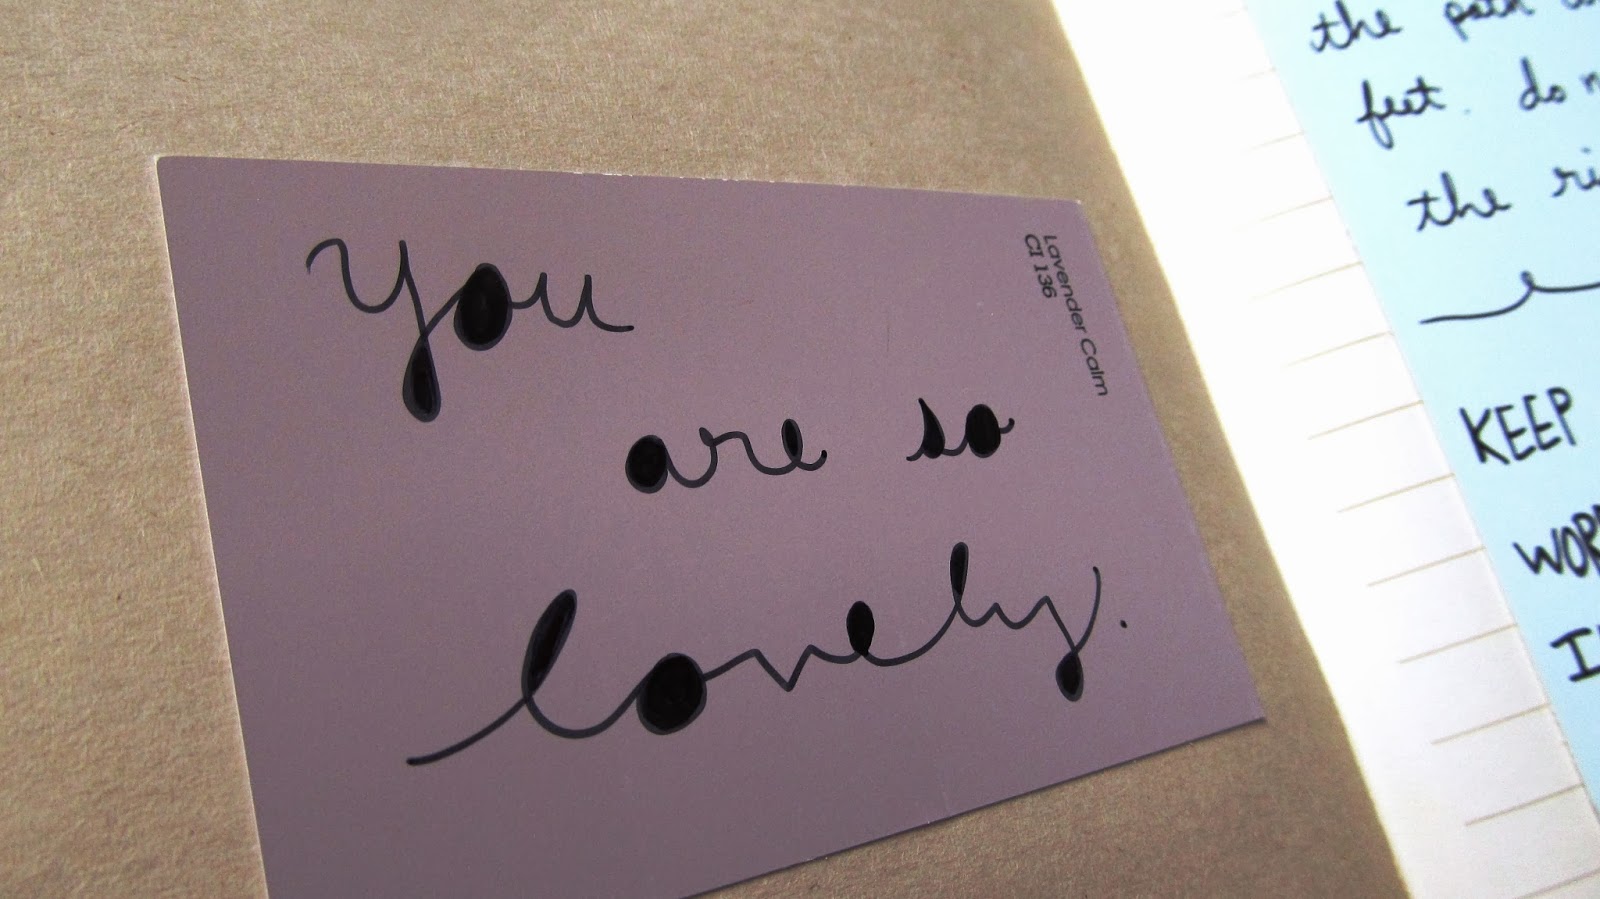 you
are so
lovely.
Lavender Calm
CI 136
the path
feet. do
the
KEEP